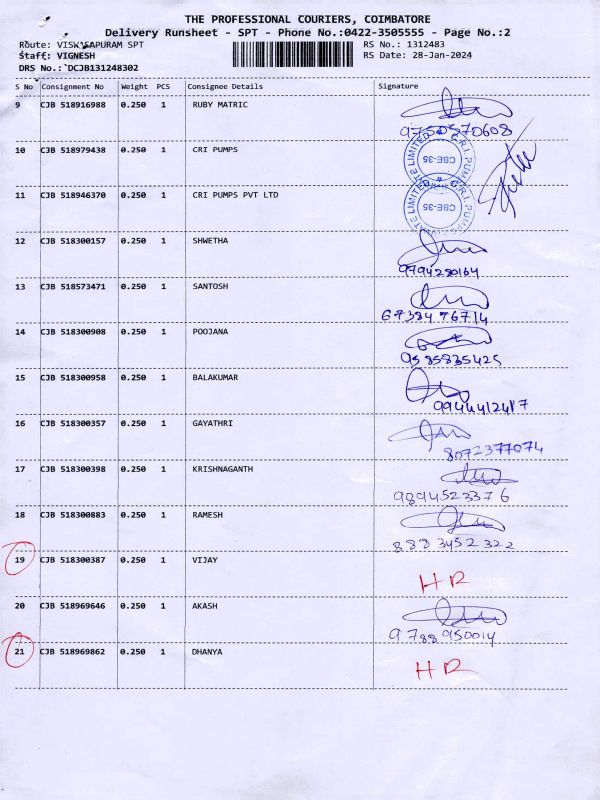 THE PROFESSIONAL COURIERS, COIMBATORE
Delivery Runsheet - SPT - Phone No.:0422-3505555 - Page No.:2
Route: VISWASAPURAM SPT RS No.: 1312483
Staff: VIGNESH RS Date: 28-Jan-2024
DRS No.: DCJB131248302
S No Consignment No Weight PCS Consignee Details Signature
9 CJB 518916988 0.250 1 RUBY MATRIC
9750570608
10 CJB 518979438 0.250 1 CRI PUMPS
CBE-35
11 CJB 518946370 0.250 1 CRI PUMPS PVT LTD
CBE-35
12 CJB 518300157 0.250 1 SHWETHA
9794280164
13 CJB 518573471 0.250 1 SANTOSH
6738476714
14 CJB 518300908 0.250 1 POOJANA
9585835425
15 CJB 518300958 0.250 1 BALAKUMAR
9944412417
16 CJB 518300357 0.250 1 GAYATHRI
8072377074
17 CJB 518300398 0.250 1 KRISHNAGANTH
9894523376
18 CJB 518300883 0.250 1 RAMESH
8883452322
19 CJB 518300387 0.250 1 VIJAY
HR
20 CJB 518969646 0.250 1 AKASH
9788950014
21 CJB 518969862 0.250 1 DHANYA
HR